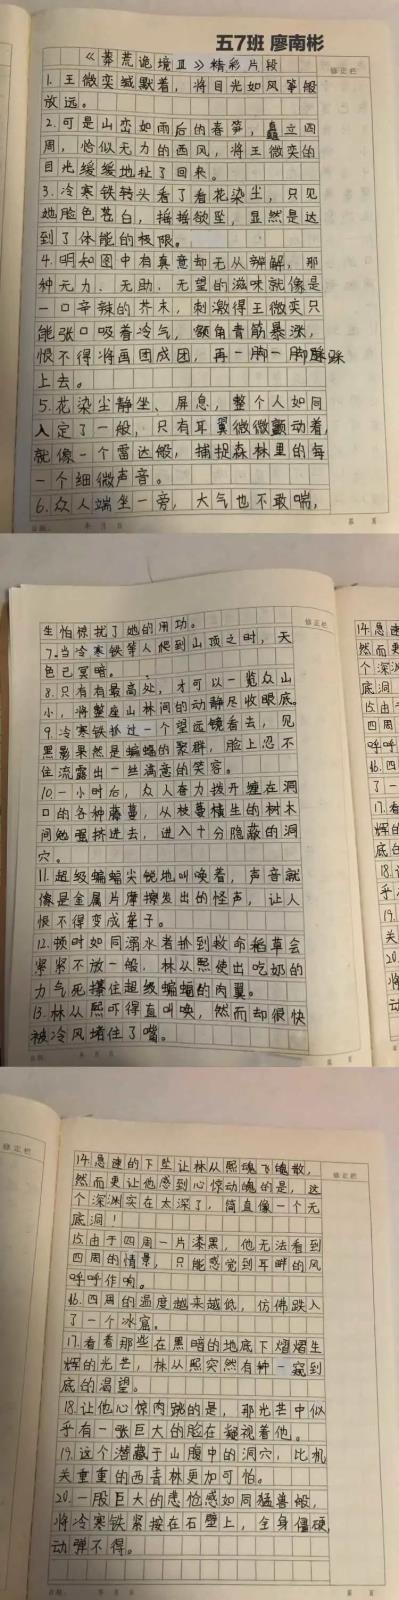 五7班 廖南彬
《莽荒诡境Ⅲ》精彩片段
修正栏
1.王微奕缄默着，将目光如风筝般
放远。
2.可是山峦如雨后的春笋，矗立四
周，恰似无力的西风，将王微奕的
目光缓缓地扯了回来。
3.冷寒铁转头看了看花染尘，只见
她脸色苍白，摇摇欲坠，显然是达
到了体能的极限。
4.明知图中有真意却无从辨解，那
种无力、无助、无望的滋味就像是
一口辛辣的芥末，刺激得王微奕只
能张口吸着冷气，额角青筋暴涨，
恨不得将画团成团，再一脚一脚踩
上去。
5.花染尘静坐、屏息，整个人如同
入定了一般，只有耳翼微微颤动着，
就像一个雷达般，捕捉森林里的每
一个细微声音。
6.众人端坐一旁，大气也不敢喘，
日期： 年 月 日
第 页
修正栏
生怕惊扰了她的用功。
7.当冷寒铁等人爬到山顶之时，天
色已冥暗。
8.只有有最高处，才可以一览众山
小，将整座山林间的动静尽收眼底。
9.冷寒铁抓过一个望远镜看去，见
黑影果然是蝙蝠的聚群，脸上忍不
住流露出一丝满意的笑容。
10.一小时后，众人奋力拨开缠在洞
口的各种藤蔓，从枝蔓横生的树木
间勉强挤进去，进入十分隐蔽的洞
穴。
11.超级蝙蝠尖锐地叫唤着，声音就
像是金属片摩擦发出的怪声，让人
恨不得变成聋子。
12.顿时如同溺水者抓到救命稻草会
紧紧不放一般，林从熙使出吃奶的
力气死搂住超级蝙蝠的肉翼。
13.林从熙吓得直叫唤，然而却很快
被冷风堵住了嘴。
日期： 年 月 日
第 页
14.急速
然而更
个深渊
底洞
15.由于
四周
呼呼
16.四
了一
17.看
辉的
底的
18.让
乎
19.
关
20.
将
动
修正栏
修正栏
14.急速的下坠让林从熙魂飞魄散，
然而更让他感到心惊动魄的是，这
个深渊实在太深了，简直像一个无
底洞！
15.由于四周一片漆黑，他无法看到
四周的情景，只能感觉到耳畔的风
呼呼作响。
16.四周的温度越来越低，仿佛跌入
了一个冰窟。
17.看着那些在黑暗的地底下熠熠生
辉的光芒，林从熙突然有种一窥到
底的渴望。
18.让他心惊肉跳的是，那光芒中似
乎有一张巨大的脸在凝视着他。
19.这个潜藏于山腹中的洞穴，比机
关重重的西青林更加可怕。
20.一股巨大的恐怆感如同猛兽般，
将冷寒铁紧按在石壁上，全身僵硬，
动弹不得。
日期： 年 月 日
第 页